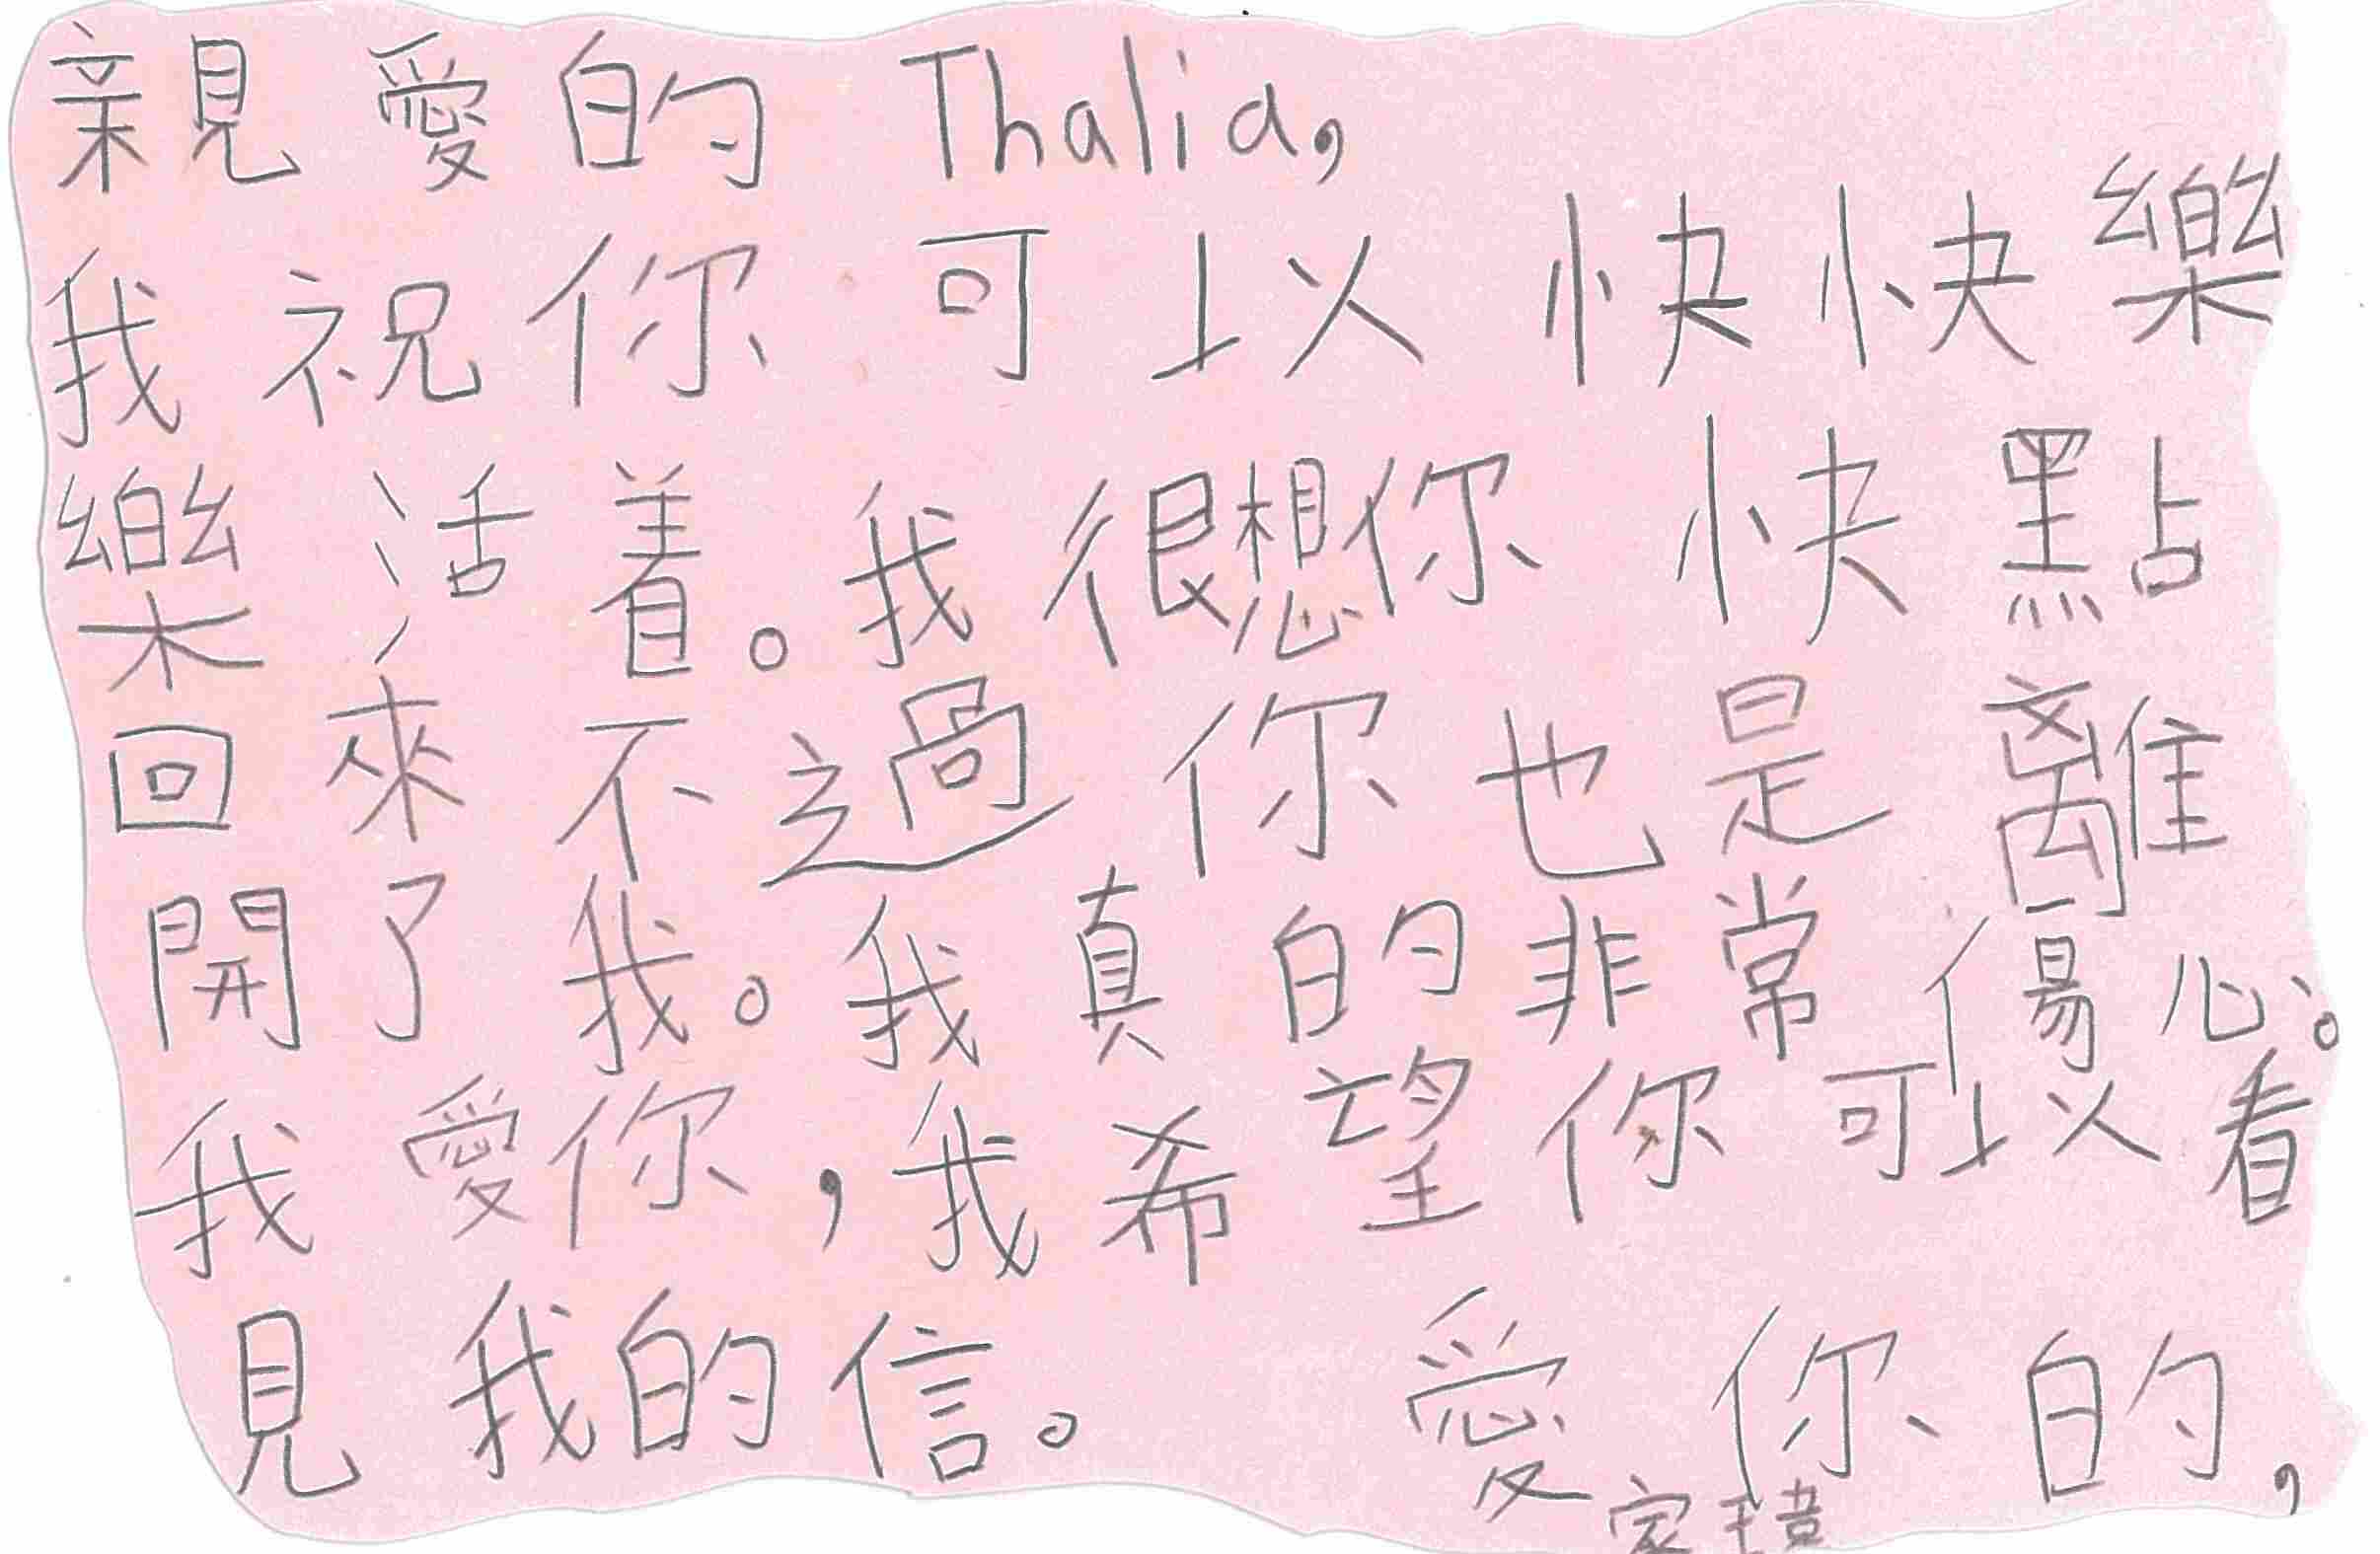 親愛的 Thalia,
我祝你可以快快樂
樂活着。我很想你快點
回來不過你也是離
開了我。我真的非常傷心。
我愛你,我希望你可以看
見我的信。 愛你的,
家